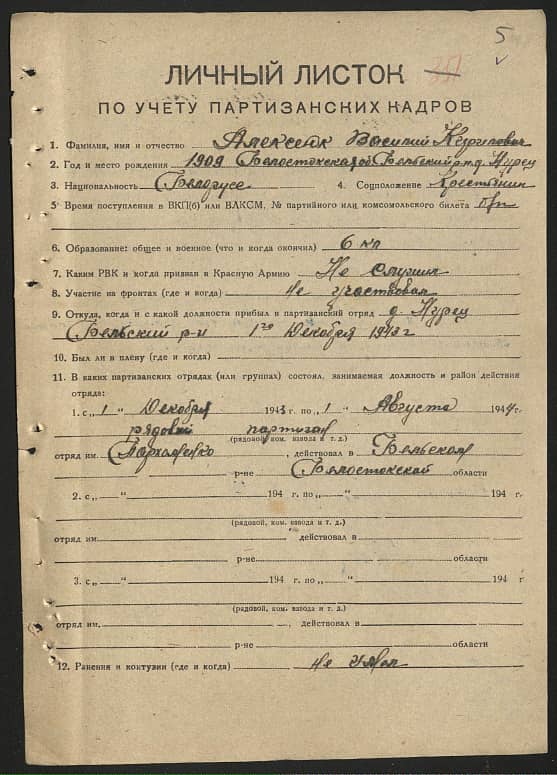 5
351
ЛИЧНЫЙ ЛИСТОК
ПО УЧЕТУ ПАРТИЗАНСКИХ КАДРОВ
1. Фамилия, имя и отчество Алексеюк Василий Кирилович
2. Год и место рождения 1909 Белостокская об Бельский р-н д. Нурец
3. Национальность Белорусс 4. Соцположение Крестьянин
5. Время поступления в ВКП(б) или ВЛКСМ, № партийного или комсомольского билета б/п
6. Образование: общее и военное (что и когда окончил) 6 кл
7. Каким РВК и когда призван в Красную Армию Не служил
8. Участие на фронтах (где и когда) Не участвовал
9. Откуда, когда и с какой должности прибыл в партизанский отряд д. Нурец
Бельский р-н 1го Декабря 1943 г
10. Был ли в плену (где и когда)
11. В каких партизанских отрядах (или группах) состоял, занимаемая должность и район действия
отряда:
1. с „ 1 " Декабря 1943 г. по „ 1 " Августа 1944 г.
рядовой партизан
(рядовой, ком. взвода и т. д.)
отряд им. Пархоменко, действовал в Бельском
р-не Белостокской области
2. с „ " 194 г. по „ " 194 г.
(рядовой, ком. взвода и т. д.)
отряд им. действовал в
р-не области
3. с „ " 194 г. по „ " 194 г.
(рядовой, ком. взвода и т. д.)
отряд им. , действовал в
р-не области
12. Ранения и контузии (где и когда) Не имел